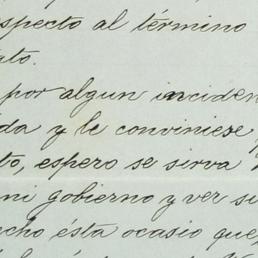 specto al término
ato.
por algun inciden
da y le conviniese
to, espero se sirva
ni gobierno y ver si
cho ésta ocasio que